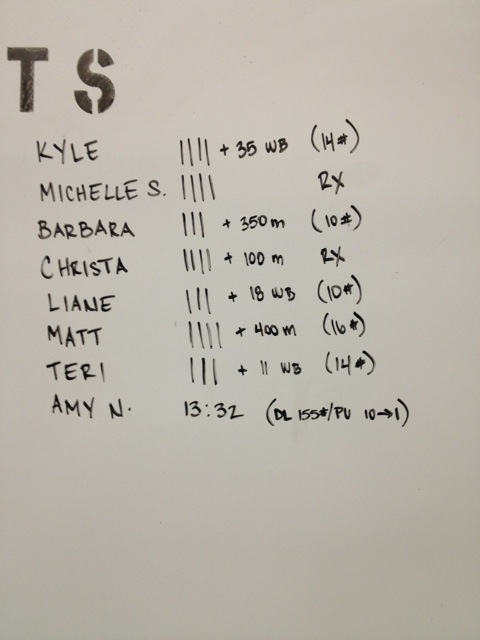 TS
KYLE |||| + 35 WB (14#)
MICHELLE S. |||| RX
BARBARA ||| + 350m (10#)
CHRISTA |||| + 100 m RX
LIANE ||| + 18 WB (10#)
MATT |||| + 400m (16#)
TERI ||| + 11 WB (14#)
AMY N. 13:32 (DL 155#/PU 10→1)